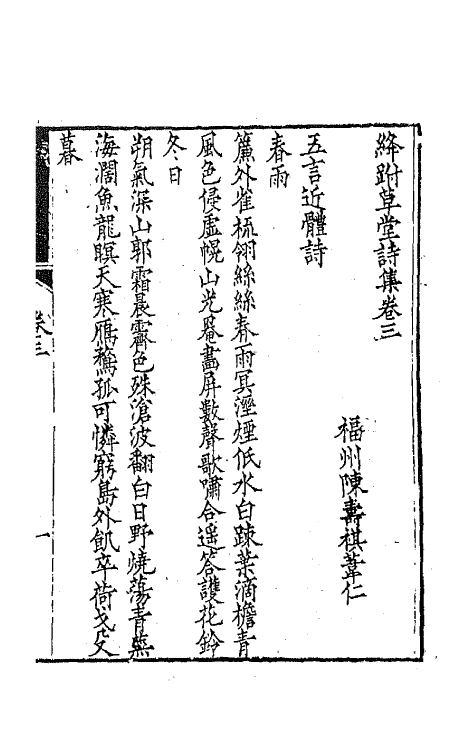 絳跗草堂詩集卷三
福州陳壽祺葦仁
五言近體詩
春雨
簾外雀梳翎絲絲春雨冥溼煙低水白疎葉滴檐青
風色侵虛幌山光罨畫屏數聲歌嘯合遥答護花鈴
冬日
朔氣深山郭霜晨霽色殊滄波翻白日野燒蕩青蕪
海濶魚龍瞑天寒鴈鶩孤可憐窮島外飢卒荷戈殳
暮
卷三
一